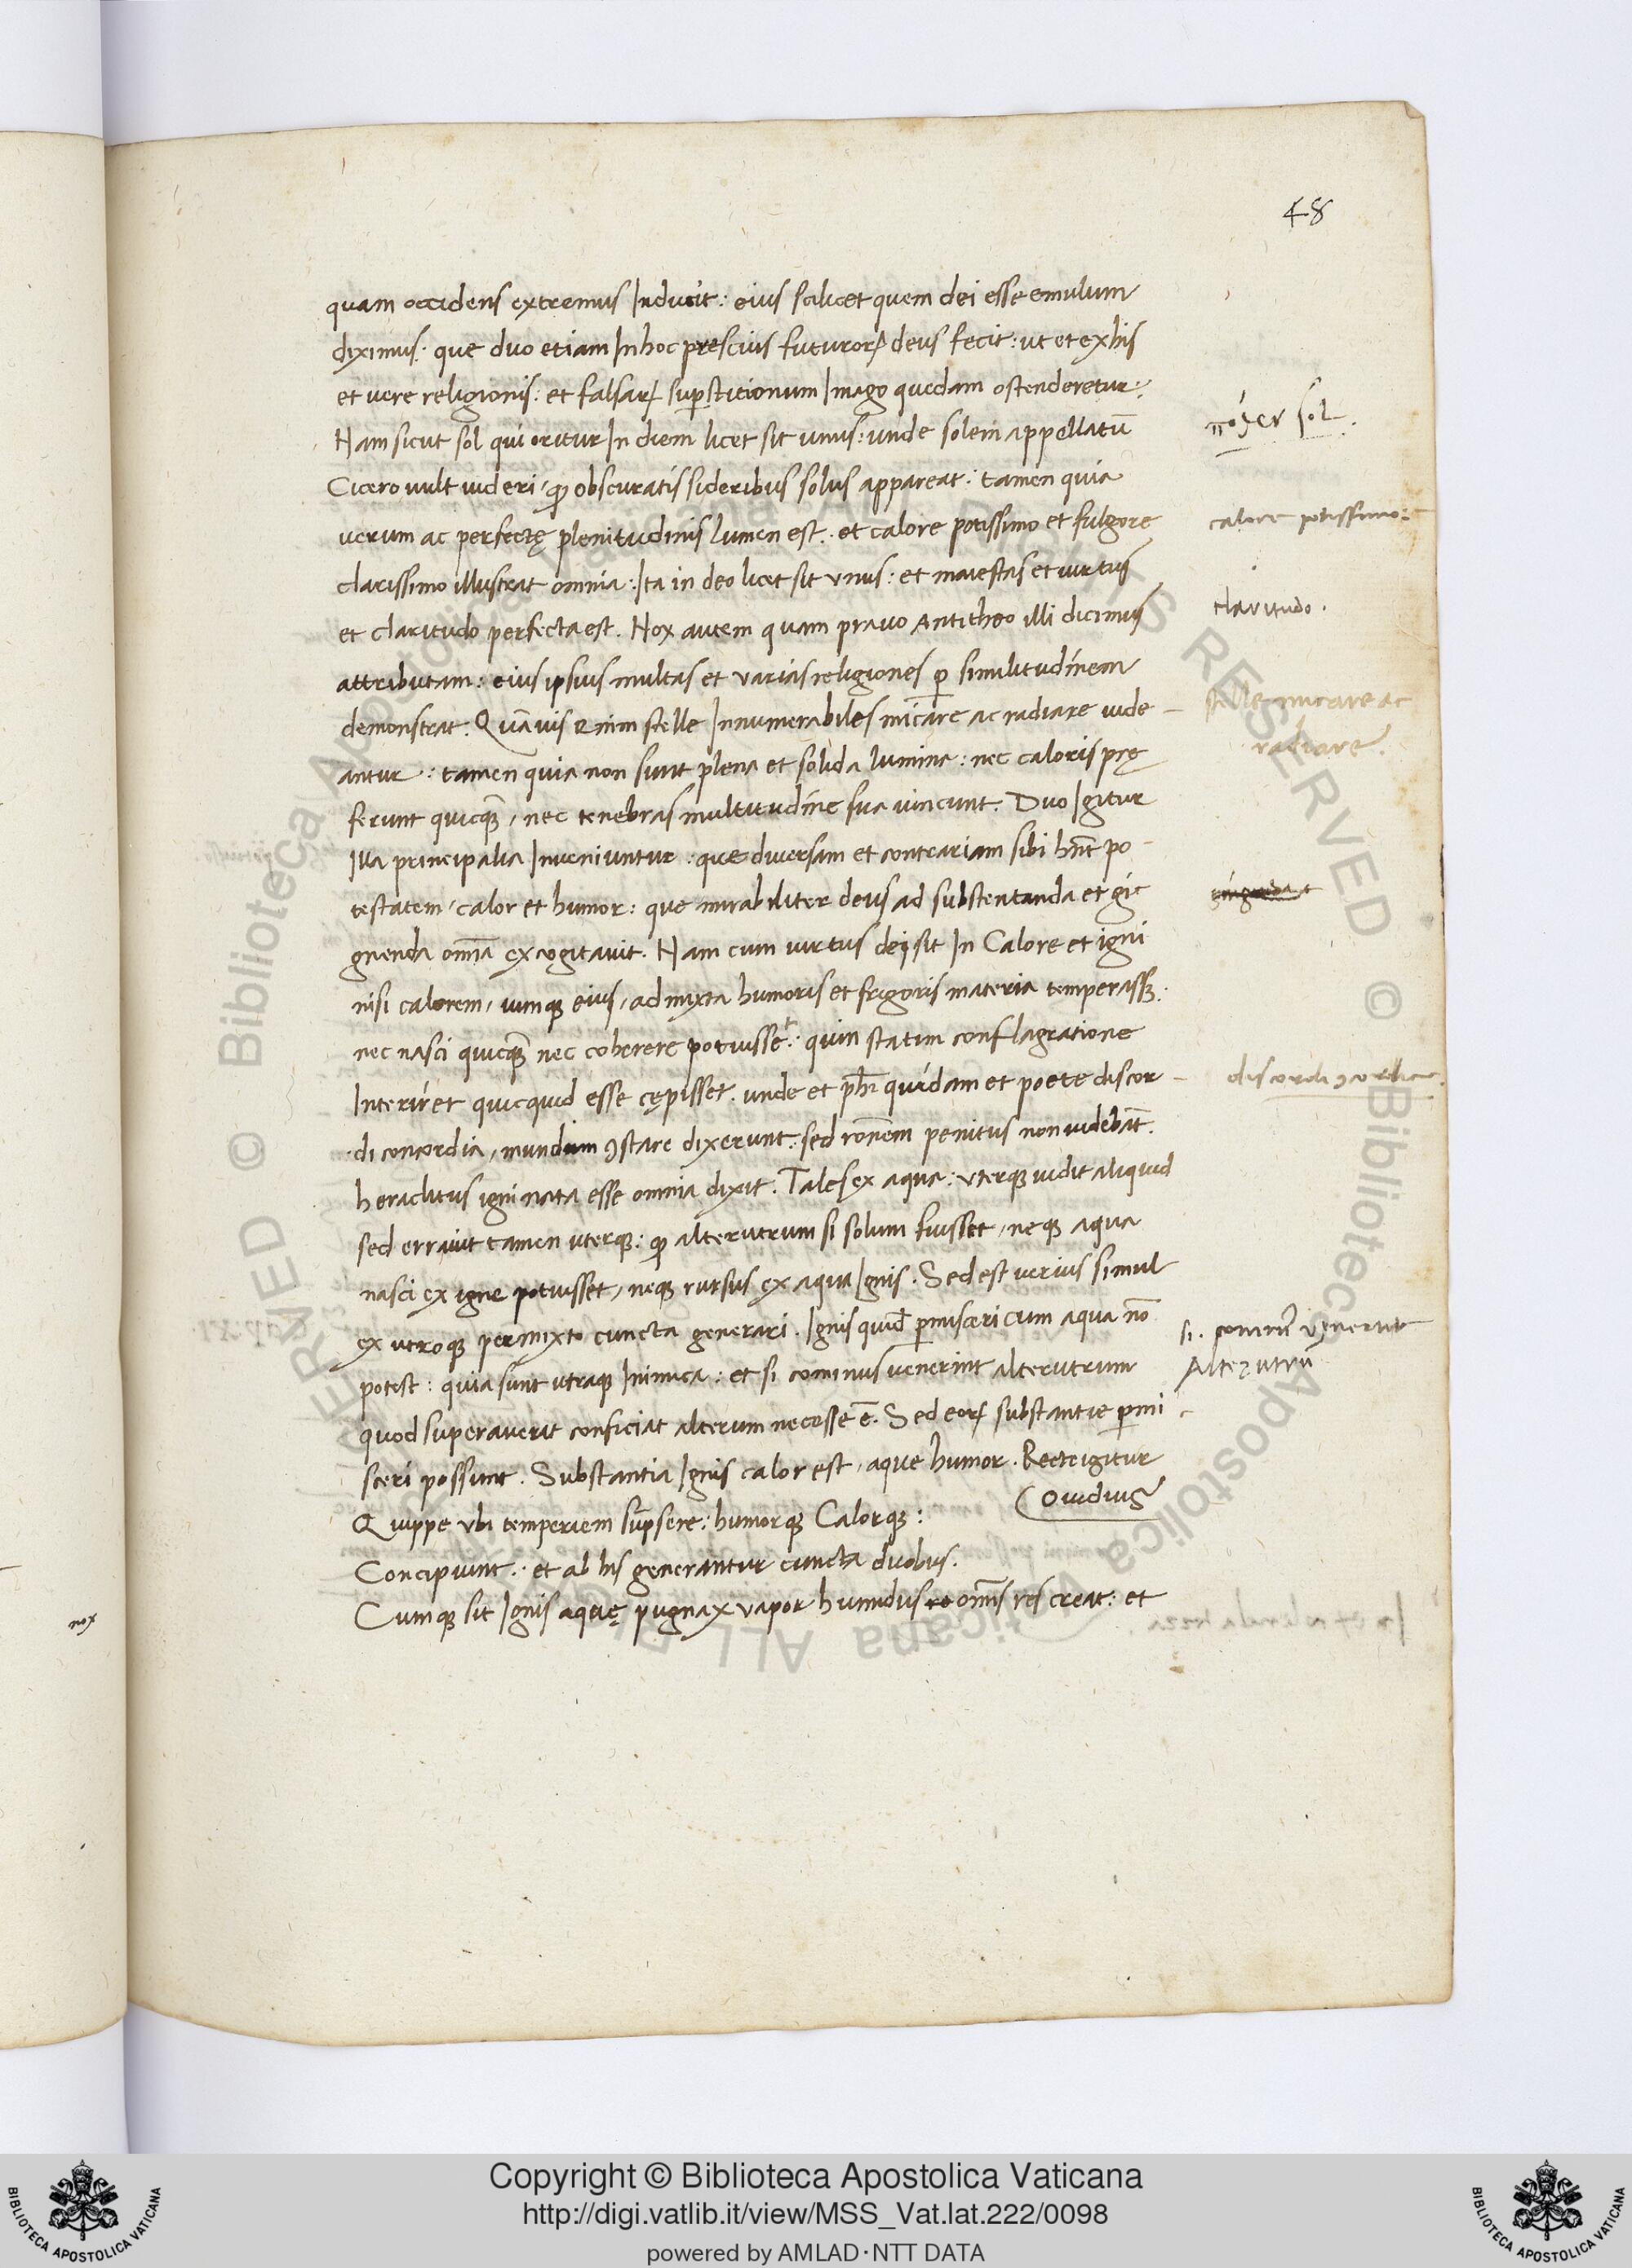 48
quam occidens extremus Inducit: eius scilicet quem dei esse emulum
diximus. que duo etiam In hoc prescius futuroꝝ deus fecit: ut et ex his
et uere religionis: et falsaꝝ suꝑstitionum Imago quedam ostenderetur:
Nam sicut sol qui oritur In diem licet sit unus: unde solem appellatū
πόθεν sol.
Cicero uult uideri, ꝙ obscuratis sideribus solus appareat: tamen quia
uerum ac perfectę plenitudinis lumen est. et calore potissimo et fulgore
calore potissimo:
clarissimo illustrat omnia: Ita in deo licet sit vnus: et maiestas et uirtus
et claritudo perfecta est. Nox autem quam prauo Antitheo illi dicimus
claritudo.
attributam: eius ipsius multas et varias religiones ꝑ similitudinem
demonstrat. Quāuis enim stelle Innumerabiles micare ac radiare uide
stelle micare ac
radiare.
antur: tamen quia non sunt plena et solida lumina: nec caloris prę
ferunt quicq̄, nec tenebras multitudine sua uincunt. Duo Igitur
Illa principalia Inueniuntur: que diuersam et contrariam sibi hn̄t po
testatem, calor et humor: que mirabiliter deus ad substentanda et gi
gnenda omīa excogitauit. Nam cum uirtus dei sit In Calore et igni
nisi calorem, uimqꝫ eius, admixta humoris et frigoris materia temperassꝫ.
nec nasci quicq̄ nec coherere potuisset: quin statim conflagratione
Interiret quicquid esse cępisset. unde et pħi quidam et poete discor
discordi ꝯcordia.
di concordia, mundum ꝯstare dixerunt: sed rōnem penitus non uidebāt.
heraclitus igni nata esse omnia dixit. Tales ex aqua: vterqꝫ uidit aliquid
sed errauit tamen vterqꝫ: ꝙ alterutrum si solum fuisset, neqꝫ aqua
nasci ex igne potuisset, neqꝫ rursus ex aqua Ignis. Sed est uerius simul
ex utroqꝫ permixto cuncta generari. Ignis quid̄ ꝑmisceri cum aqua nō
si. comin9 vენerint
potest: quia sunt utraqꝫ Inimica: et si cominus uenerint alterutrum
Alterutrū
quod superauerit conficiat alterum necesse ē. Sed eoꝝ substantie ꝑmi
sceri possunt. Substantia Ignis calor est, aque humor. Recte igitur
(Ouidius
Quippe vbi temperiem sūpsere: humorqꝫ Calorqꝫ:
Concipiunt: et ab his generantur cuncta duobus.
Cumqꝫ sit Ignis aquę pugnax vapor humidus omīs res creat: et
nox
Copyright © Biblioteca Apostolica Vaticana
http://digi.vatlib.it/view/MSS_Vat.lat.222/0098
powered by AMLAD·NTT DATA
BIBLIOTECA APOSTOLICA VATICANA
BIBLIOTECA APOSTOLICA VATICANA